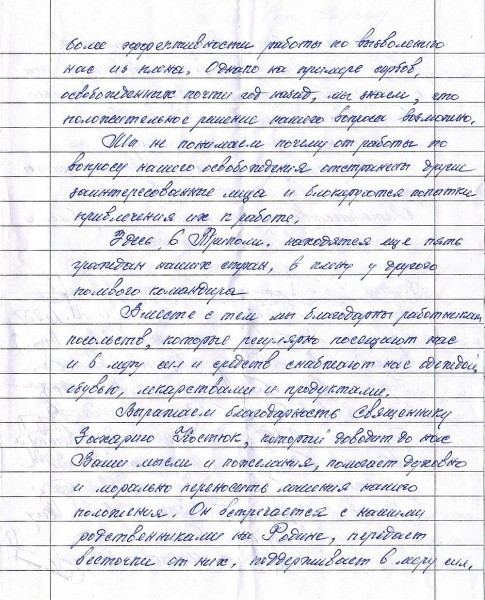 более эффективности работы по вызволению
нас из плена. Однако на примере сербов,
освобожденных почти год назад, мы знаем, что
положительное решение нашего вопроса возможно.
Мы не понимаем почему от работы по
вопросу нашего освобождения отстранены другие
заинтересованные лица и блокируются попытки
привлечения их к работе.
Здесь, в Триполи, находятся еще пять
граждан наших стран, в плену у другого
полевого командира
Вместе с тем мы благодарны работникам
посольств, которые регулярно посещают нас
и в меру сил и средств снабжают нас одеждой,
обувью, лекарствами и продуктами.
Выражаем благодарность священнику
Захарию Костюк, который доводит до нас
Ваши мысли и пожелания, помогает духовно
и морально переносить лишения нашего
положения. Он встречается с нашими
родственниками на Родине, передает
весточки от них, поддерживает в меру сил.